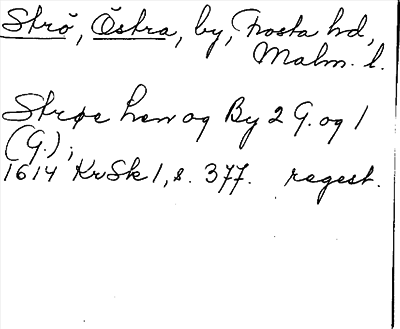 Strö, Östra, by, Frosta hd,
Malm. l.
Strøe
og By 2 G. og 1
(G.);
1614 KrSk 1, s. 377. regest.